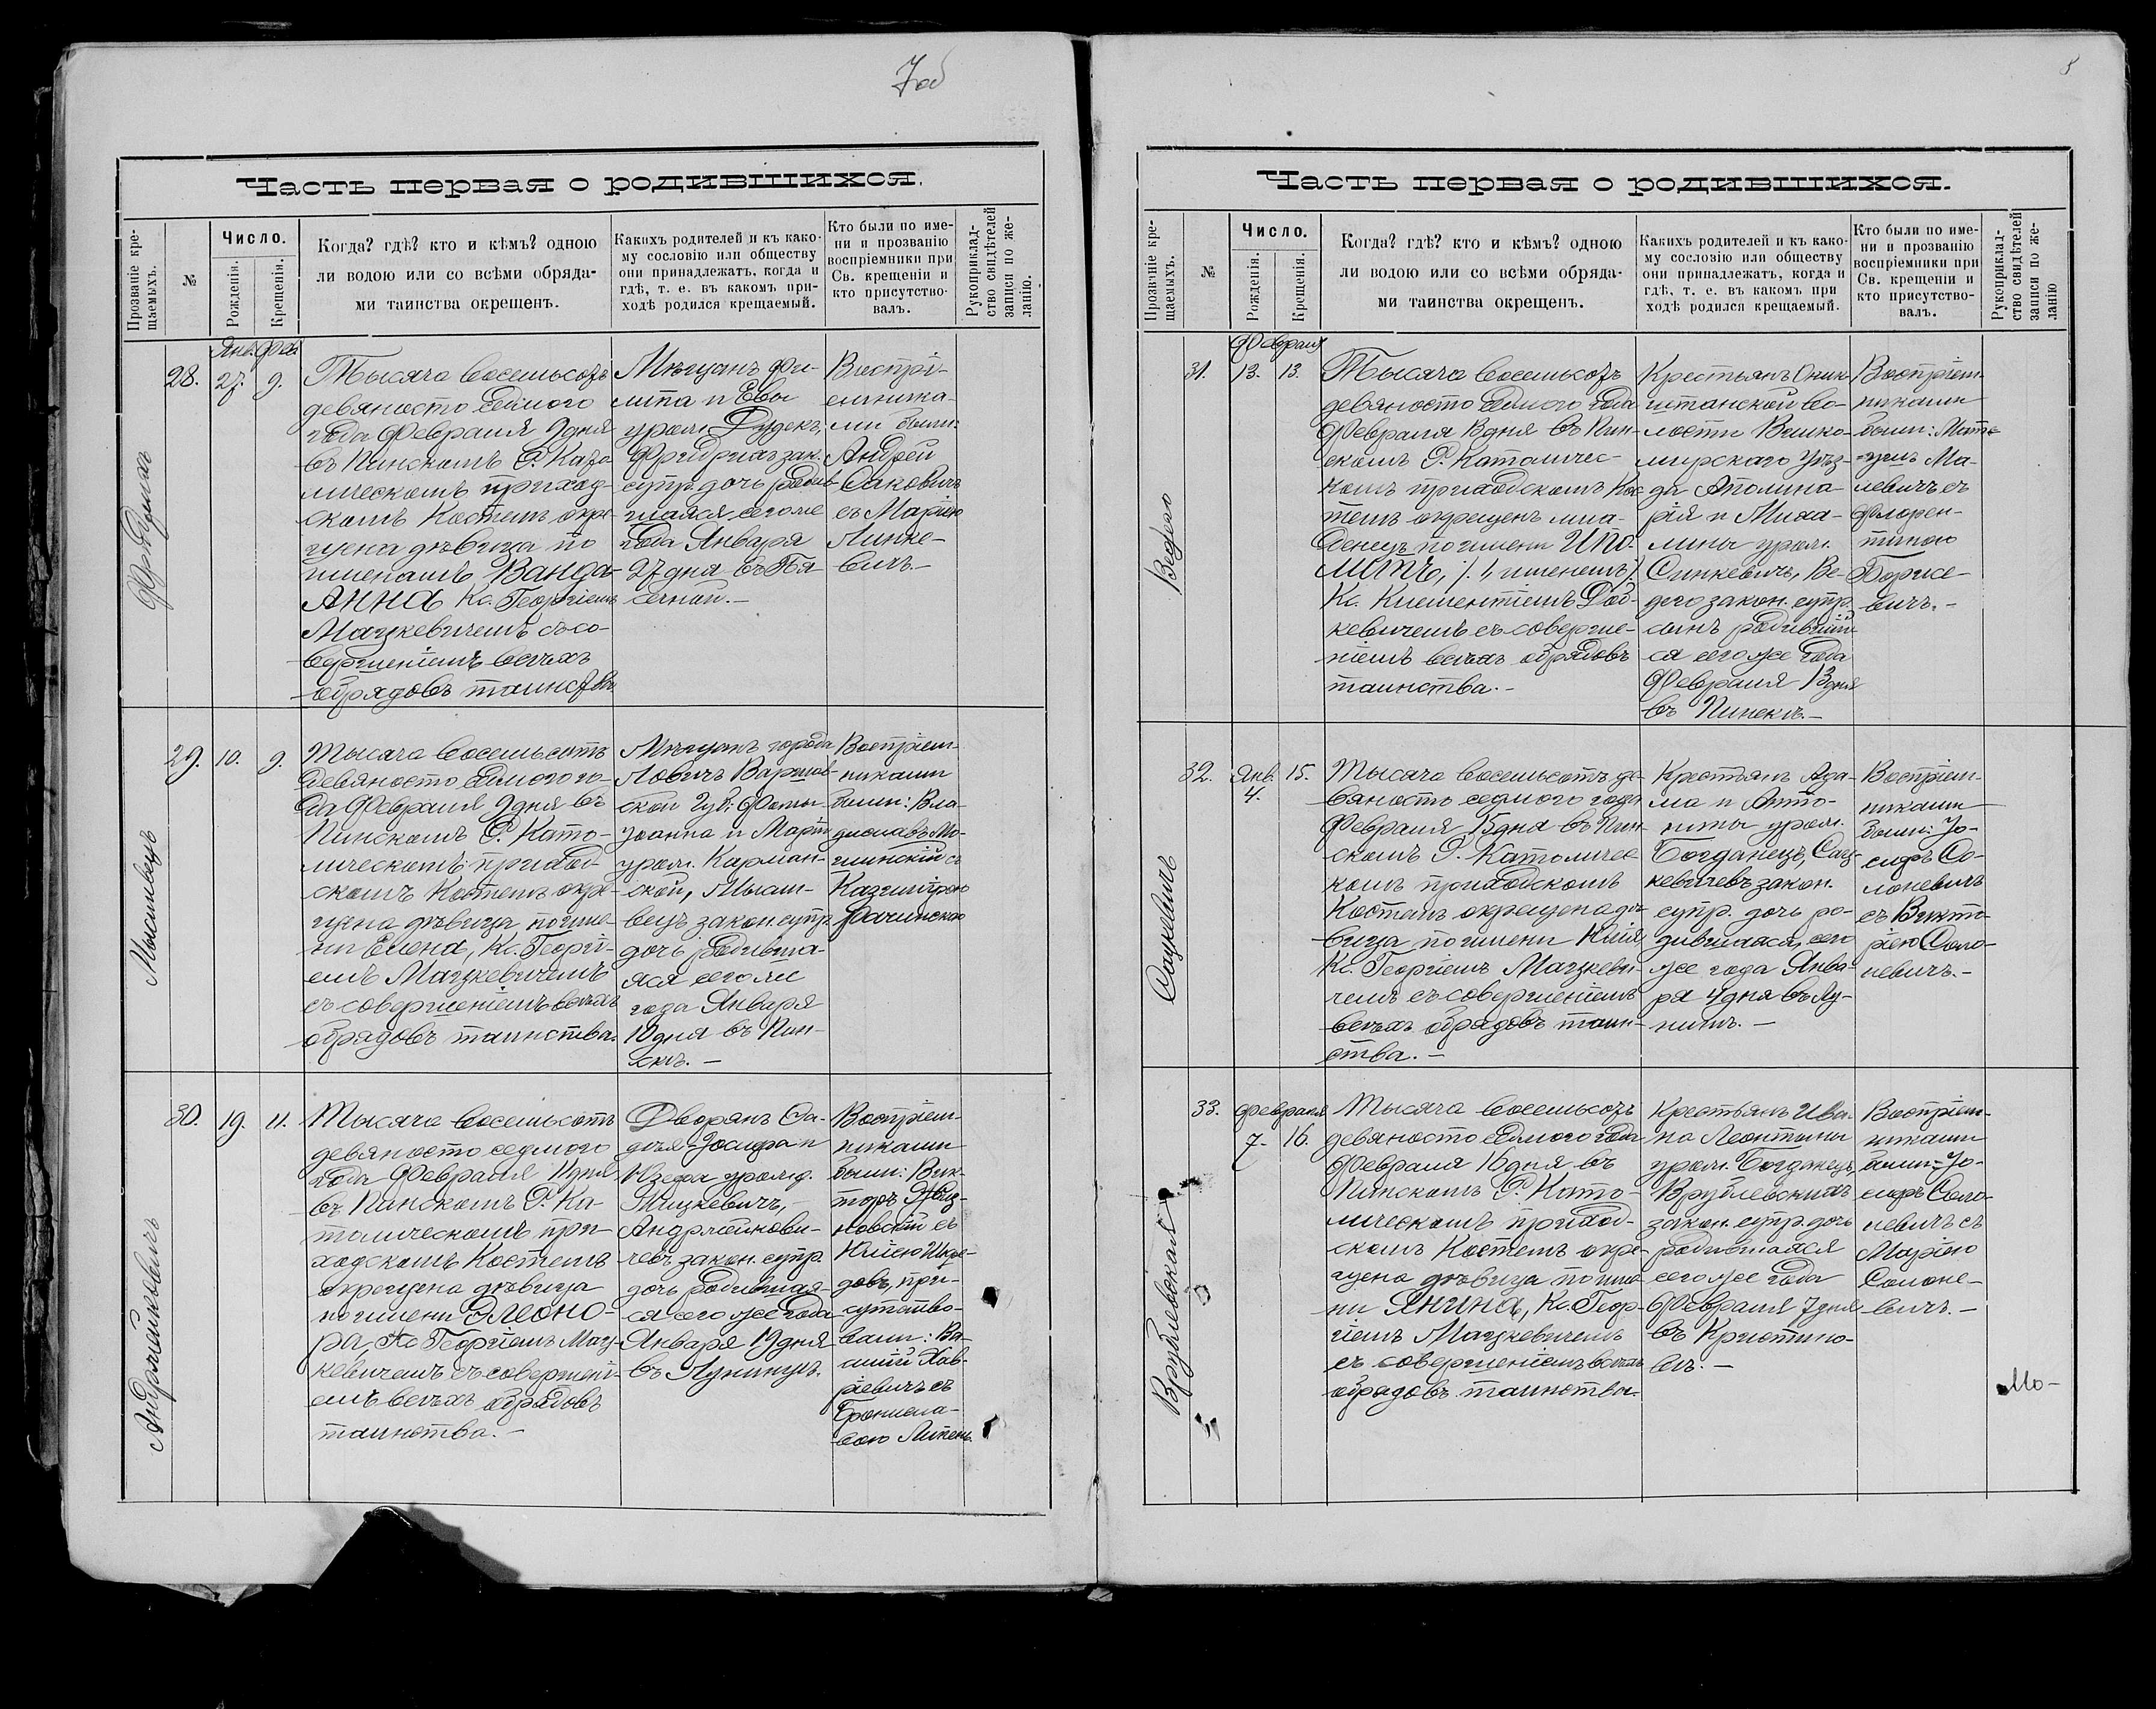 7об
Часть первая о родившихся.
Прозваніе кре-
щаемыхъ.
№
Число.
Рожденія.
Крещенія.
Когда? гдѣ? кто и кѣмъ? одною
ли водою или со всѣми обряда-
ми таинства окрещенъ.
Какихъ родителей и къ како-
му сословію или обществу
они принадлежатъ, когда и
гдѣ, т. е. въ какомъ при-
ходѣ родился крещаемый.
Кто были по име-
ни и прозванію
воспріемники при
Св. крещеніи и
кто присутство-
валъ.
Рукоприклад-
ство свидѣтелей
записи по же-
ланію.
Янв. Фев.
28. 27. 9.
Тысяча восемьсотъ
девяносто седмого
года Февраля 9 дня
въ Пинскомъ Р. Като
лическомъ приход-
скомъ Костелѣ окре-
щена дѣвица по
именамъ Ванда-
Анна Кс. Георгіемъ
Мацкевичемъ съ со-
вершеніемъ всѣхъ
обрядовъ таинства
Мѣщанъ Фи-
липа и Евы
урожд. Дудекъ,
Фридрихъ зак.
супр. дочь родив
шаяся сего же
года Января
27 дня въ
Воспрі-
емника-
ми были:
Андрей
Саковичъ
съ Маріею
Линке-
вичъ.-
29. 10. 9.
Мысливецъ
Тысяча восемьсотъ
девяносто седмого го-
да Февраля 9 дня въ
Пинскомъ Р. Като-
лическомъ приход-
скомъ Костелѣ окре-
щена дѣвица по име-
ни Елена, Кс. Георгі-
емъ Мацкевичемъ
съ совершеніемъ всѣхъ
обрядовъ таинства.
Мѣщанъ города
Ловичъ Варшав-
ской Губ:
и Маріи
урож. Карман-
ской, Мысли-
вецъ закон. супр.
дочь родивша-
яся сего же
года Января
10 дня въ Пин-
скѣ. -
Воспріем-
никами
были: Вла-
диславъ
съ
Казимірою
30. 19. 11.
Андрлейковичъ
Тысяча восемьсотъ
девяносто седмого
года Февраля 11 дня
въ Пинскомъ Р. Ка-
толическомъ при-
ходскомъ Костелѣ
окрещена дѣвица
по имени Элеоно-
ра, Кс Георгіемъ Мац-
кевичемъ съ совершені-
емъ всѣхъ обрядовъ
таинства. -
Дворянъ
Іосифа и
Юзефа урожд.
Мицкевичъ,
Андрлейкови-
чевъ закон. супр.
дочь родившая-
ся сего же года
Января 19 дня
въ Лунинцѣ.
Воспріем-
никами
были: Вик-
торъ
съ
Юліею
при-
сутство-
вали:
съ
Брониела-
вою
Часть первая о родившихся.
Прозваніе кре-
щаемыхъ.
№
Число.
Рожденія.
Крещенія.
Когда? гдѣ? кто и кѣмъ? одною
ли водою или со всѣми обряда-
ми таинства окрещенъ.
Какихъ родителей и къ како-
му сословію или обществу
они принадлежатъ, когда и
гдѣ, т. е. въ какомъ при
ходѣ родился крещаемый.
Кто были по име-
ни и прозванію
воспріемники при
Св. крещеніи и
кто присутство-
валъ.
Рукоприклад-
ство свидѣтелей
записи по же-
ланію
Февраля
31. 13. 13.
Ведло
Тысяча восемьсотъ
девяносто седмого года
Февраля 13 дня въ Пин-
скомъ Р. Католичес-
комъ приходскомъ Кос
телѣ окрещенъ мла-
денецъ по имени Ипо-
литъ, /. 1, именемъ /.
Кс. Клементіемъ Дод-
кевичемъ съ соверше-
ніемъ всѣхъ обрядовъ
таинства. -
Крестьянъ Оник-
штанской во-
лости Вилко-
мирскаго уѣз-
да Аполина-
рія и Миха-
лины урож.
Синкевичъ, Ве-
дло закон. супр.
сынъ родившій-
ся сего же года
Февраля 13 дня
въ Пинскѣ. -
Воспріем-
никами
были: Мате-
ушъ Ма-
левичъ съ
Флорен-
тиною
Борисе-
вичъ. -
32. Янв. 15.
4.
Сацкевичъ
Тысяча восемьсотъ де-
вяносто седмого года
Февраля 15 дня въ Пин-
скомъ Р. Католичес
комъ приходскомъ
Костелѣ окрещена дѣ-
вица по имени Юлія
Кс. Георгіемъ Мацкеви-
чемъ съ совершеніемъ
всѣхъ обрядовъ таин-
ства. -
Крестьянъ Ада-
ма и Анто-
нины урож.
Богданецъ, Сац-
кевичевъ закон.
супр. дочь ро-
дившаяся, сего
же года Янва-
ря 4 дня въ Лу-
нинѣ. -
Воспріем-
никами
были: Іо-
сифъ Со-
лоневичъ
съ Викто-
ріею Соло-
невичъ. -
33. Февраля
7. 16.
Врублевская
Тысяча восемьсотъ
девяносто седмого года
Февраля 16 дня въ
Пинскомъ Р. Като-
лическомъ приход-
скомъ Костелѣ окре-
щена дѣвица по име
ни Янина, Кс. Геор-
гіемъ Мацкевичемъ
съ совершеніемъ всѣхъ
обрядовъ таинства.
Крестьянъ Ива-
на Леонтины
урож. Богданецъ
Врублевскихъ
закон. супр. дочь
родившаяся
сего же года
Февраля 7 дня
въ Кристино-
вѣ. -
Воспріем-
никами
были: Іо-
сифъ Соло-
невичъ съ
Маріею
Солоне-
вичъ. -
Мо-